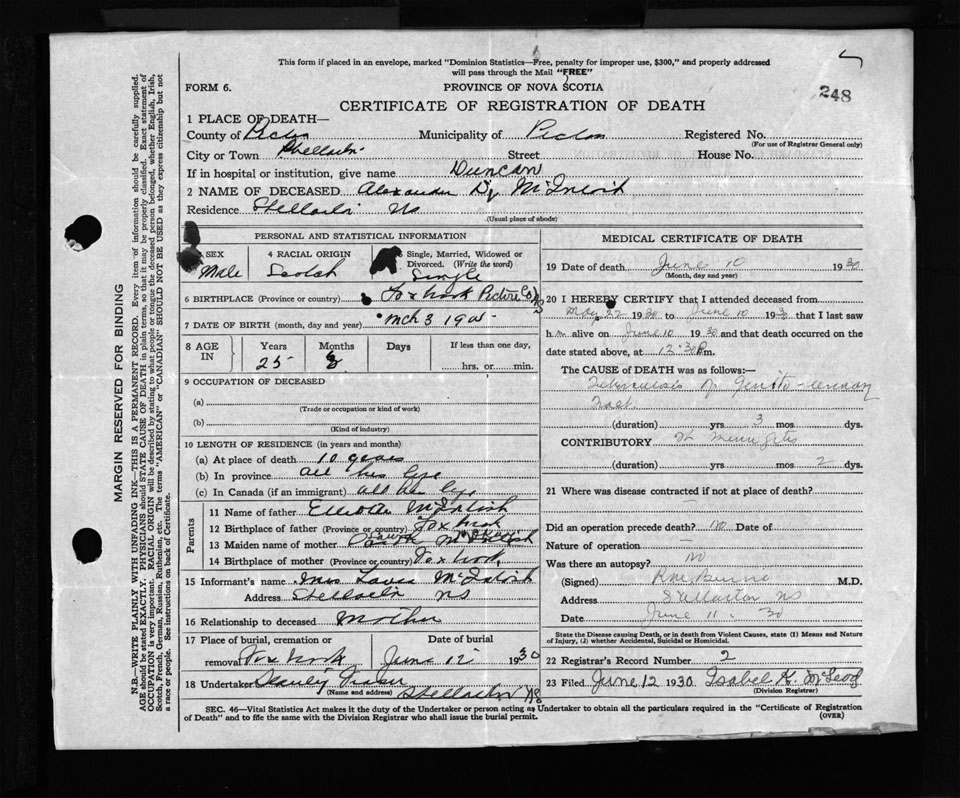 This form if placed in an envelope, marked "Dominion Statistics—Free, penalty for improper use, $300," and properly addressed
will pass through the Mail "FREE"
FORM 6.
PROVINCE OF NOVA SCOTIA
248
CERTIFICATE OF REGISTRATION OF DEATH
1 PLACE OF DEATH—
County of Pictou Municipality of Pictou Registered No.
(For use of Registrar General only)
City or Town Street House No.
If in hospital or institution, give name
Duncan
2 NAME OF DECEASED Alexander McIntosh
Residence Stellarton NS
(Usual place of abode)
PERSONAL AND STATISTICAL INFORMATION
SEX 4 RACIAL ORIGIN Single, Married, Widowed or
Divorced. (Write the word)
Male Scotch Single
6 BIRTHPLACE (Province or country) Fox brook Pictou Co NS
7 DATE OF BIRTH (month, day and year) Mch 3 1905
8 AGE IN Years Months Days If less than one day,
25 3 hrs. or min.
9 OCCUPATION OF DECEASED
(a)
(Trade or occupation or kind of work)
(b)
(Kind of industry)
10 LENGTH OF RESIDENCE (in years and months)
(a) At place of death 10 years
(b) In province all his life
(c) In Canada (if an immigrant) all his life
Parents
11 Name of father McIntosh
12 Birthplace of father (Province or country) Fox brook
13 Maiden name of mother
14 Birthplace of mother (Province or country) Fox brook
15 Informant's name Mrs McIntosh
Address Stellarton NS
16 Relationship to deceased Mother
17 Place of burial, cremation or Date of burial
removal Fox brook June 12 1930
18 Undertaker Stanley Fraser
(Name and address) Stellarton NS
MEDICAL CERTIFICATE OF DEATH
19 Date of death June 10 1930
(Month, day and year)
20 I HEREBY CERTIFY that I attended deceased from
May 22 1930 to June 10 1930 that I last saw
him alive on June 10 1930 and that death occurred on the
date stated above, at 12.30 Pm.
The CAUSE OF DEATH was as follows:—
Tuberculosis of Genito-urinary
Tract
(duration) yrs 3 mos dys.
CONTRIBUTORY Meningitis
(duration) yrs mos 2 dys.
21 Where was disease contracted if not at place of death?
Did an operation precede death? no Date of
Nature of operation
Was there an autopsy? no
(Signed) M.D.
Address Stellarton NS
Date June 11 30
State the Disease causing Death, or in death from Violent Causes, state (1) Means and Nature
of Injury, (2) whether Accidental, Suicidal or Homicidal.
22 Registrar's Record Number 2
23 Filed June 12 1930 Isabel K. McLeod
(Division Registrar)
SEC. 46—Vital Statistics Act makes it the duty of the Undertaker or person acting as Undertaker to obtain all the particulars required in the "Certificate of Registration
of Death" and to file the same with the Division Registrar who shall issue the burial permit.
(OVER)
MARGIN RESERVED FOR BINDING
N.B.—WRITE PLAINLY WITH UNFADING INK—THIS IS A PERMANENT RECORD. Every item of information should be carefully supplied.
AGE should be stated EXACTLY. PHYSICIANS should STATE CAUSE OF DEATH in plain terms, so that it may be properly classified. Exact statement of
OCCUPATION is very important. RACIAL ORIGIN will be described by stating to what people or tongue the deceased person belonged, whether English, Irish,
Scotch, French, German, Russian, Ruthenian, etc. The terms "AMERICAN" or "CANADIAN" SHOULD NOT BE USED as they express citizenship but not
a race or people. See instructions on back of Certificate.